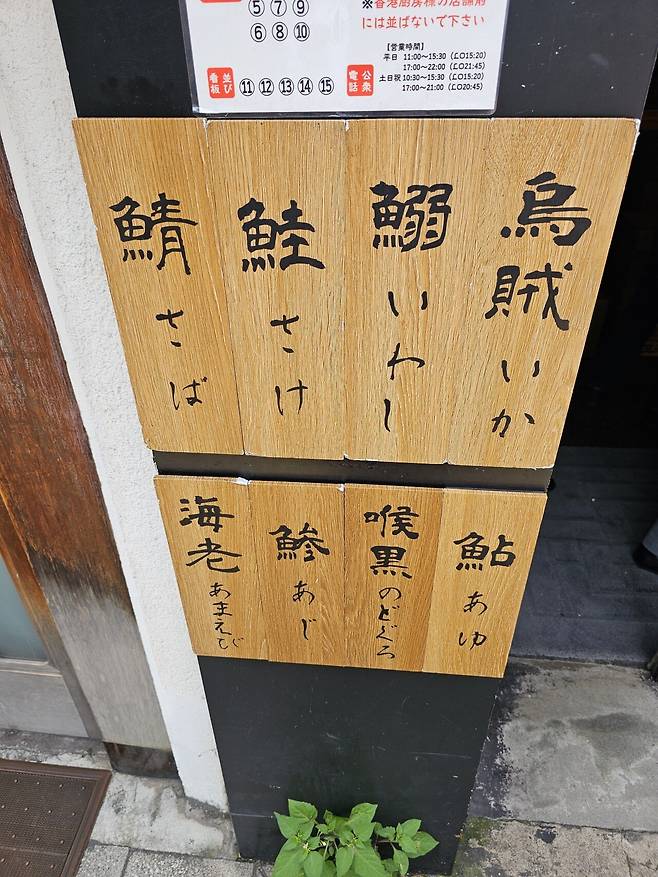 ⑤ ⑦ ⑨
⑥ ⑧ ⑩
並び看板
⑪ ⑫ ⑬ ⑭ ⑮
公衆電話
※香港厨房様の店舗前
には並ばないで下さい
【営業時間】
平日 11:00～15:30 (LO15:20)
17:00～22:00 (LO21:45)
土日祝 10:30～15:30 (LO15:20)
17:00～21:00 (LO20:45)
烏賊 いか
鰯 いわし
鮭 さけ
鯖 さば
鮎 あゆ
喉黒 のどぐろ
鯵 あじ
海老 あまえび